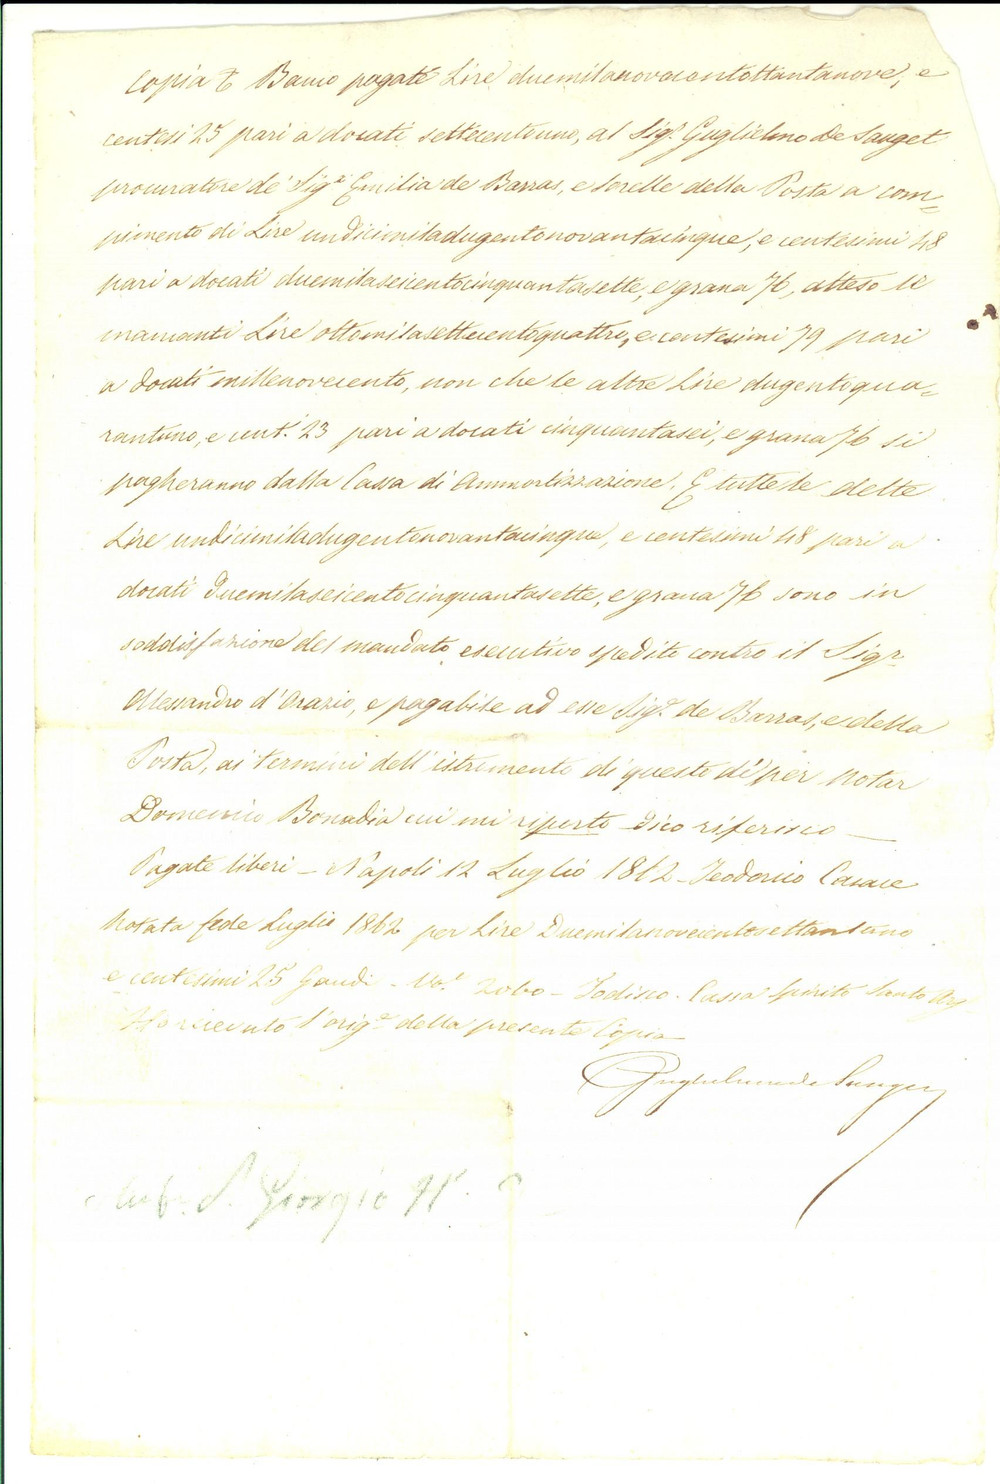 Copia € Banco pagate Lire duemilanovecentottantanove, e
centesi 25 pari a docati settecentouno, al Sigr. Guglielmo De Sauget
procuratore de' Sigri Emilia de Barras, e sorelle della Posta a com=
pimento di Lire undicimiladugentonovantacinque, e centesimi 48
pari a docati duemilaseicentocinquantasette, e grana 76, atteso le
mancanti Lire ottomilasettecentoquattro, e centesimi 79 pari
a docati millenovecento, non che le altre Lire dugentoqua=
rantuno, e cent. 23 pari a docati cinquantasei, e grana 76 si
pagheranno dalla Cassa di Ammortizzazione. E tutte le dette
Lire undicimiladugentonovantacinque, e centesimi 48 pari a
docati Duemilaseicentocinquantasette, e grana 76 sono in
soddisfazione del mandato esecutivo spedito contro il Sigr
Alessandro d'Orazio, e pagabile ad esse Sigre de Barras, e della
Posta, ai termini dell'istrumento di questo dì per Notar
Domenico Bonadia cui mi riporto - dico riferisco —
Pagate liberi - Napoli 12 Luglio 1862 - Teodorico Cacace
Notata fede Luglio 1862 per Lire Duemilanovecentosettantuno
e centesimi 25 Gaudi - 2060 - Todisco - Cassa Spirito Santo
Ho ricevuto l'orige della presente Copia
Guglielmo de Sauget
S. Giorgio